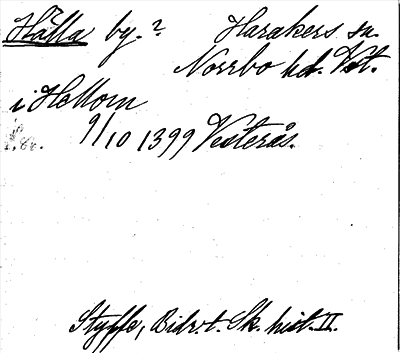 Hälla by. ? Harakers sn.
Norrbo hd. Vst.
i Hellom
9/10 1399 Vesterås.
Styffe, Bidr. t. Sk. hist. II.